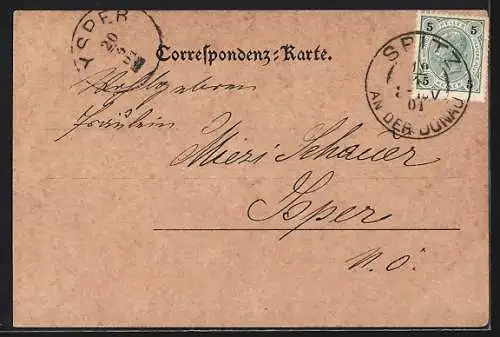 YSPER
20
5
01
Correspondenz-Karte.
SPITZ
19
5
01
AN DER DONAU
5 5
5 5
Wohlgeboren
Fräulein
Miezi Schauer
Isper
N. Ö.